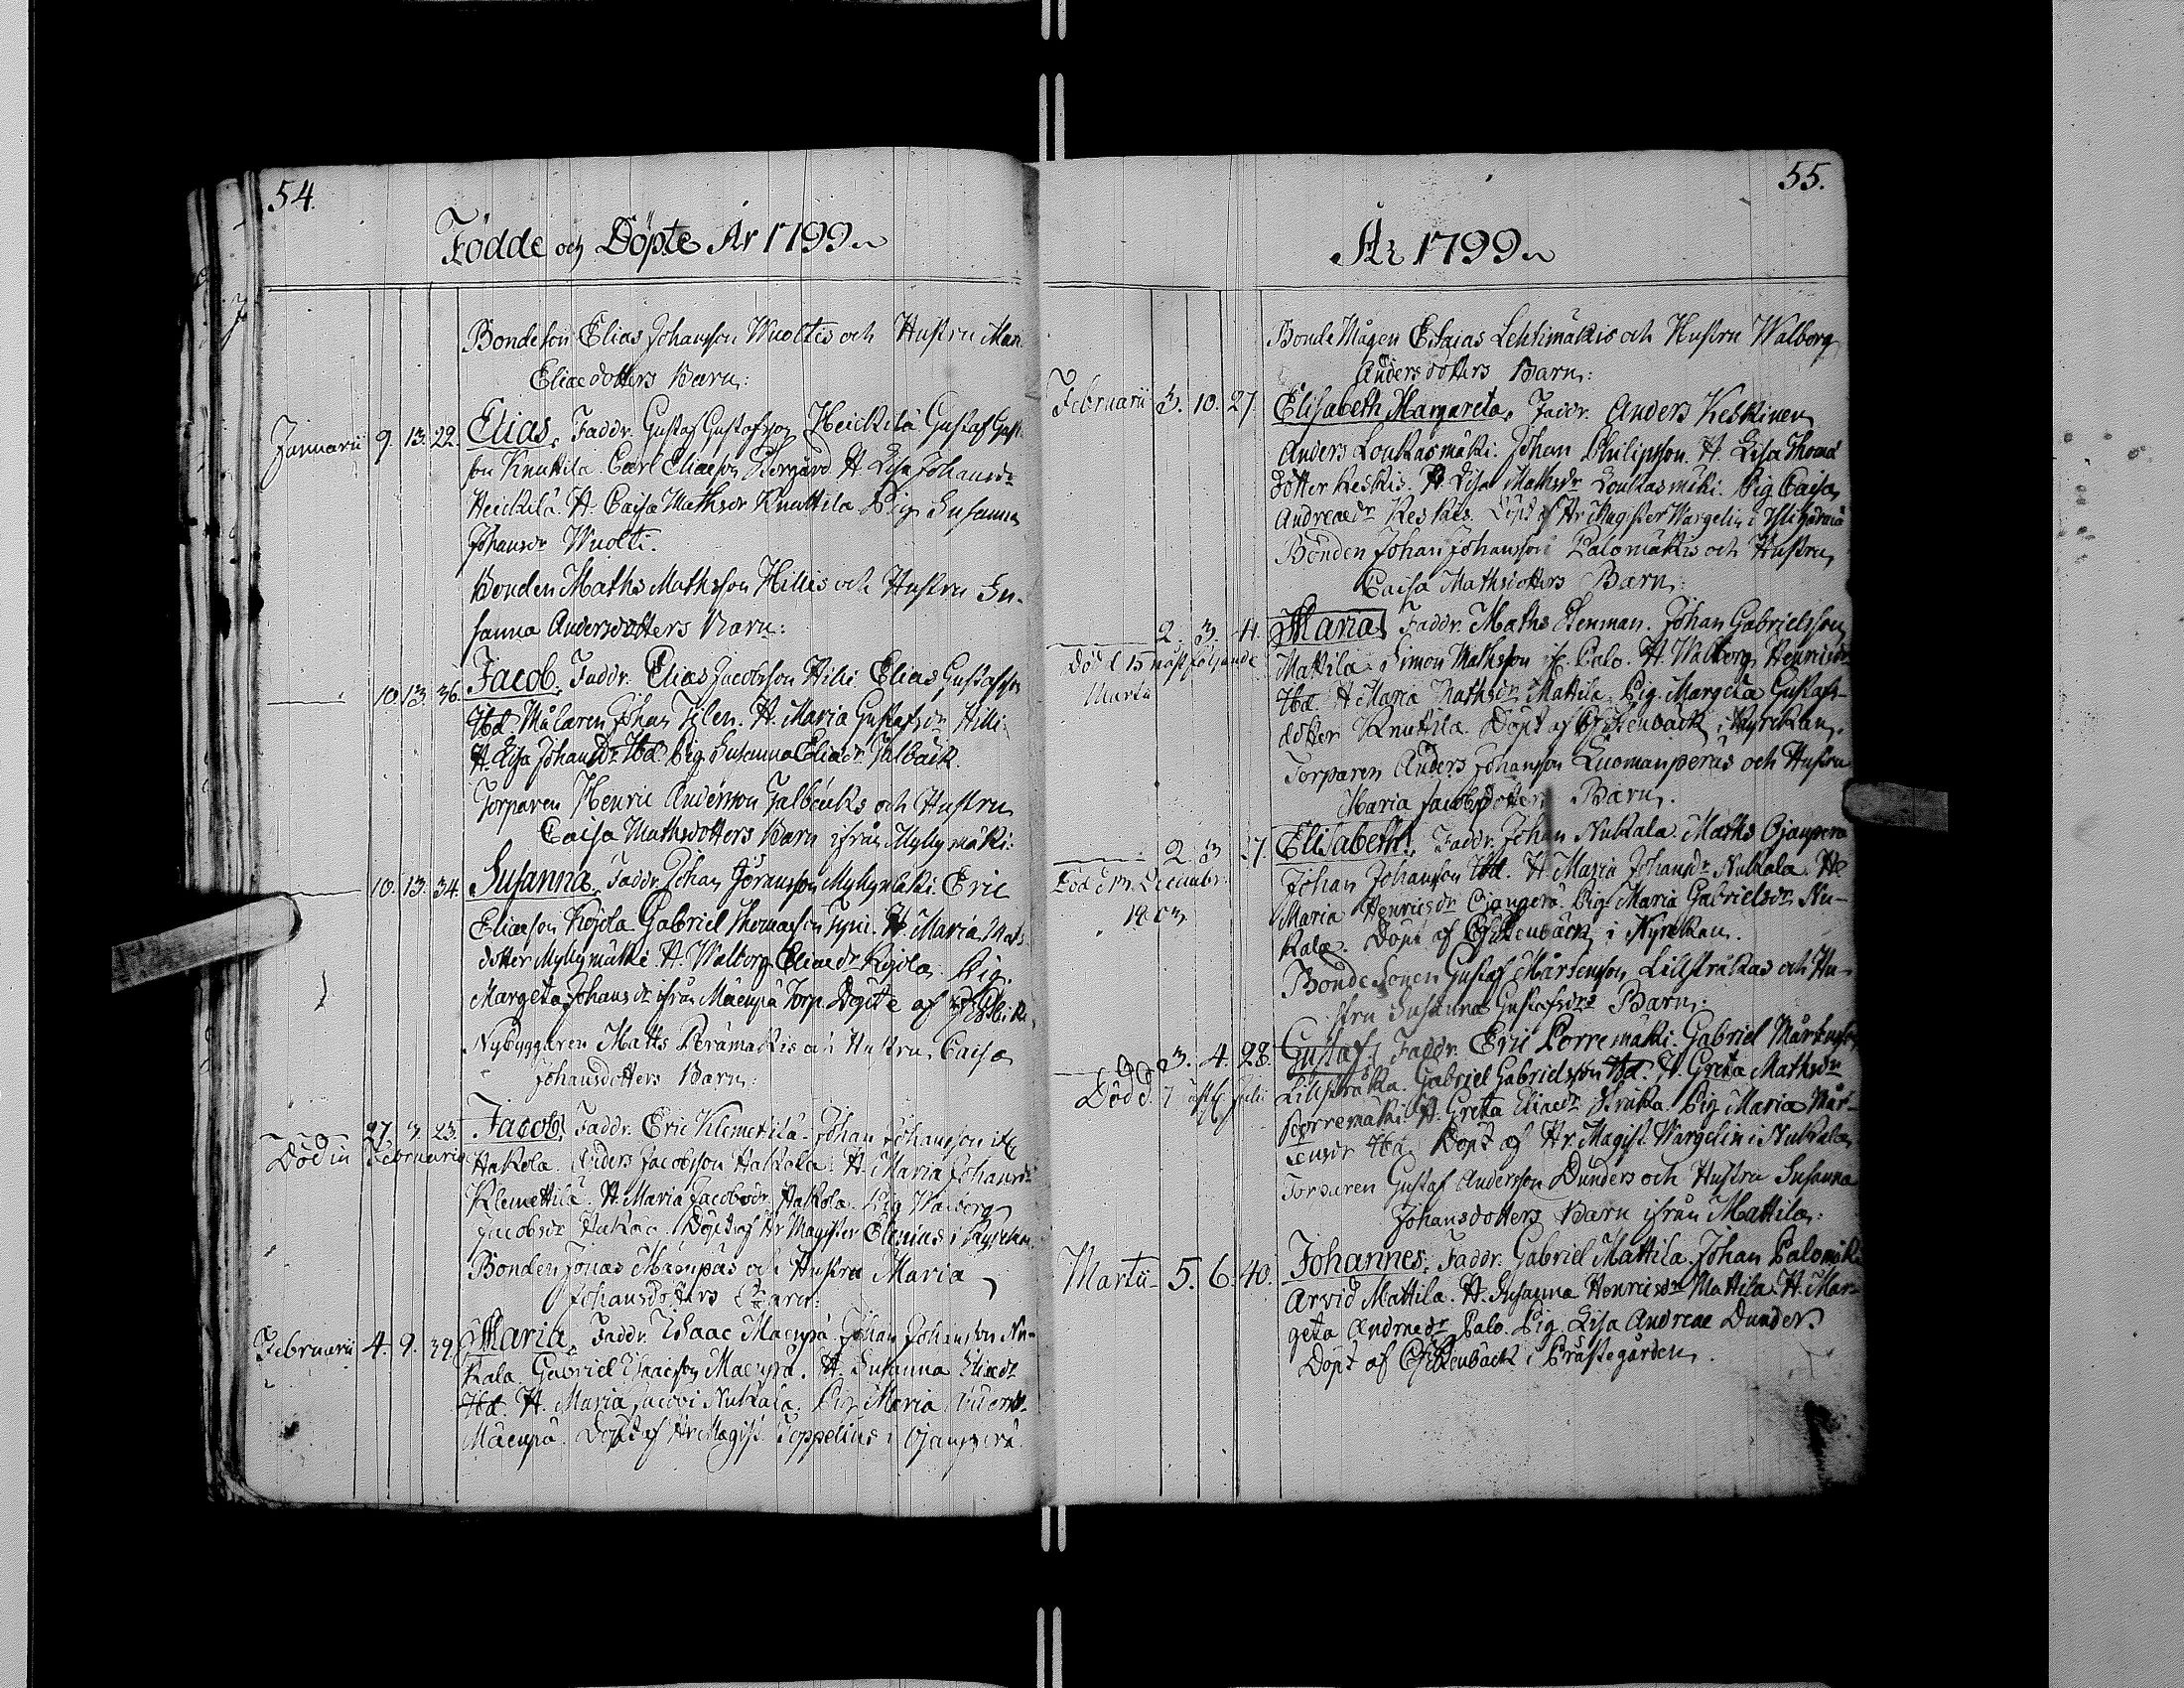 54.
Födde och Döpte År 1799
Bondeson Elias Johansson Wuoltis och Hustru Mari
Eliaedotters Barn:
Januarii 9. 13. 22. Elias, Faddr. Gustaf Gustafsson Heickilä Gustaf Gust-
son Knuttila Carl Eliaeson H. Lisa Johansdr
Heickilä H. Caisa Mathsdr Knuttila Pig. Susanna
Johansdr Wuolti.
Bonden Maths Mathsson Hillis och Hustru Su-
sanna Andersdotters Barn:
10. 13. 36. Jacob, Faddr. Elias Jacobsson Hilli Elias Gustafsson
Ibd Målaren Johan Tilen. H. Maria Gustafsdr Hilli
H. Lisa Johansdr Ibd. Pig. Susanna Eliaedr Jalback.
Torparen Henric Andersson Jalbacks och Hustru
Caisa Mathsdotters Barn ifrån Myllymäki:
10. 13. 34. Susanna, Faddr. Johan Göransson Myllymäki. Eric
Eliaeson Kojola Gabriel Thomasson H. Maria Mats
dotter Myllymäki H. Walborg Eliaedr Kojola Pig.
Margeta Johansdr ifrån Mäenpä Torp. Döpte af
Nybyggaren Matts Perämäkis och Hustru Caisa
Johansdotters Barn:
27. 3. 23. Jacob, Faddr. Eric Klemetilä. Johan Johansson
Död in Februario
Hakola. Anders Jacobsson Hakola. H. Maria Johansdr
Klemettilä. H. Maria Jacobsdr Hakola. Pig Walborg
Jacobsdr Hakola. Döpt af Hr Magister Elenius i Kyrckan.
Bonden Jonas Mäenpäs och Hustru Maria
Johansdotters Barn:
Februarii 4. 9. 39. Maria, Faddr. Isaac Mäenpä Johan Johansson Nu-
kala. Gabriel Isaacsson Mäenpä. H. Susanna Eliaedr
Ibd. H. Maria Jacobi Nukala. Pig Maria
Mäenpä. Döpt af Hr Magist. Toppelius i Ojanperä.
55.
År 1799
Bonde Mågen Esaias Lehtimäkis och Hustru Walborg
Andersdotters Barn:
Februarii 3. 10. 27. Elisabeth Margareta, Faddr. Anders Keskinen
Anders Loukasmäki. Johan Philipsson. H. Lisa Thomæ
dotter Keskis. H. Lisa Mathsdr Loukasmäki. Pig. Caisa
Andreaedr Keskis. Döpt af Hr Magister Wargelin i Ylihärmä
Bonden Johan Johansson Palomäkis och Hustru
Caisa Mathsdotters Barn:
2. 3. 4. Maria, Faddr. Maths Stenman. Johan Gabrielsson
Död d. 15 näst följande
Martii
Mattila. Simon Mathsson Palo. H. Walborg Henricsdr
Ibd. H. Maria Mathsdr Mattila. Pig. Margeta Gustafs-
dotter Knuttila. Döpt af i Kyrckan.
Torparen Anders Johansson Luomanperäs och Hustru
Maria Jacobsdotters Barn.
2. 3. 17. Elisabeth, Faddr. Johan Nukala. Maths Ojanperä
Decembr.
Johan Johansson Ibd. H. Maria Johansdr Nukala. H.
Maria Henricsdr Ojanperä. Pig. Maria Gabrielsdr Nu-
kala. Döpt af i Kyrckan.
Bonde Sonen Gustaf Mårtensson Lillstråkas och Hu-
stru Susanna Gustafsdrs Barn:
23. 4. 28. Gustaf, Faddr. Eric Porremäki. Gabriel Mårtensson
Död d. 7 Julii
Lillstråka. Gabriel Gabrielsson Ibd. H. Greta Mathsdr
Porremäki. H. Greta Eliaedr Stråka. Pig Maria Mår-
tensdr Ibd. Döpt af Hr. Magist. Wargelin i Nukala
Torparen Gustaf Andersson Dunders och Hustru Susanna
Johansdotters Barn ifrån Mattila:
Martii 5. 6. 40. Johannes, Faddr. Gabriel Mattila. Johan Palomäki
Arvid Mattila. H. Susanna Henricsdr Mattila. H. Mar-
geta Andreaedr Palo. Pig. Lisa Andreae Dunder.
Döpt af i Prästegården.